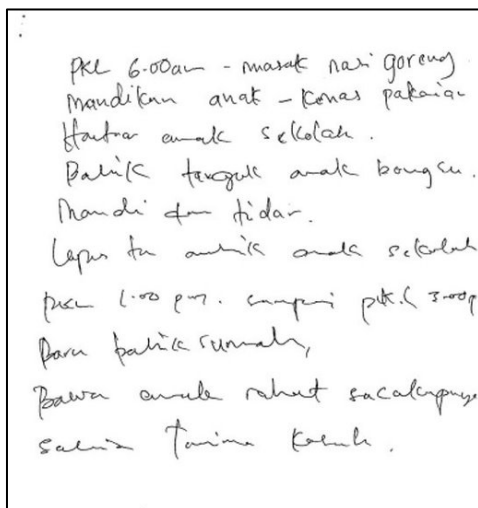 PKL 6.00am - masak nasi goreng
Mandikan anak - kemas pakaian
Hantar anak sekolah.
Balik tengok anak bongsu.
Mandi dan tidur.
Lepas tu ambik anak sekolah
PKL 1.00 pm. sampai pkl 3.00p
Baru balik rumah,
Bawa anak
Terima Kasih.